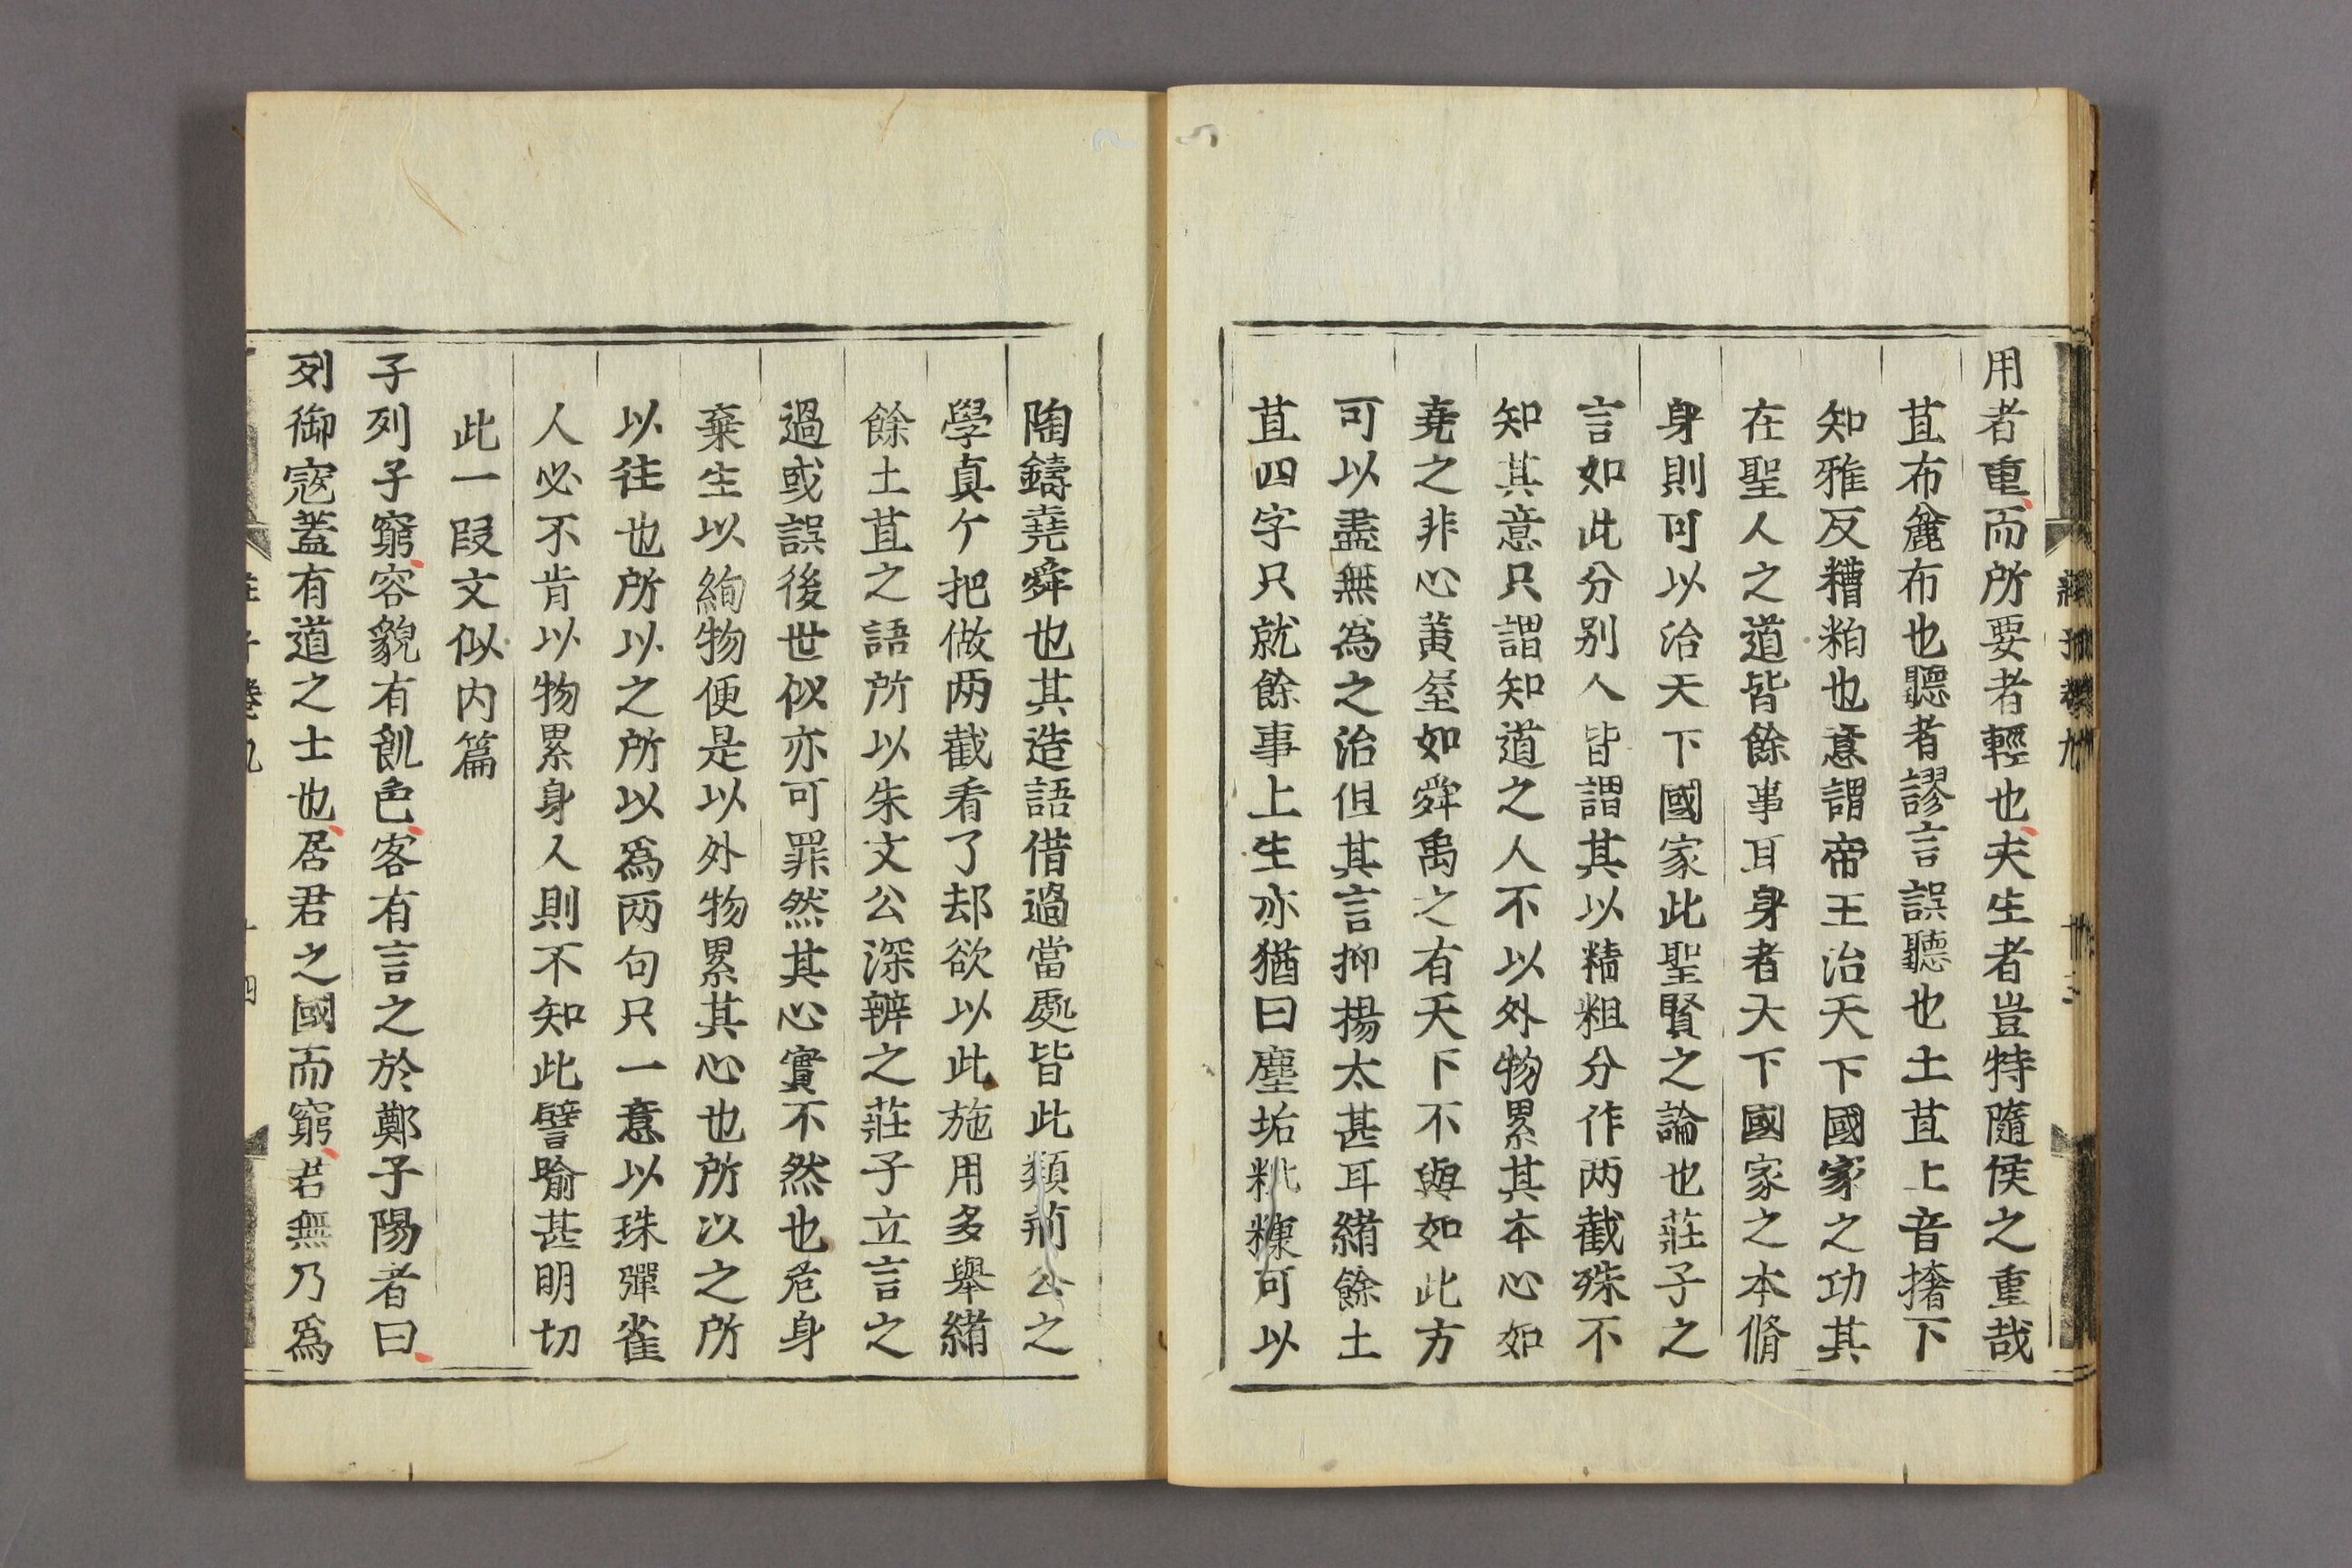 用者重而所要者輕也夫生者豈特隨侯之重哉
苴布麄布也聽者謬言誤聽也土苴上音撦下
知雅反糟粕也意謂帝王治天下國家之功其
在聖人之道皆餘事耳身者天下國家之本脩
身則可以治天下國家此聖賢之論也莊子之
言如此分别人皆謂其以精粗分作两截殊不
知其意只謂知道之人不以外物累其本心如
堯之非心黃屋如舜禹之有天下不與如此方
可以盡無為之治但其言抑揚太甚耳緒餘土
苴四字只就餘事上生亦猶曰塵垢粃糠可以
陶鑄堯舜也其造語借過當處皆此類荊公之
學真个把做两截看了却欲以此施用多舉緒
餘土苴之語所以朱文公深辨之莊子立言之
過或誤後世似亦可罪然其心實不然也危身
棄生以絢物便是以外物累其心也所以之所
以往也所以之所以爲两句只一意以珠彈雀
人必不肯以物累身人則不知此譬喻甚明切
此一段文似内篇
子列子窮容貌有飢色客有言之於鄭子陽者曰
列御寇蓋有道之士也居君之國而窮若無乃爲